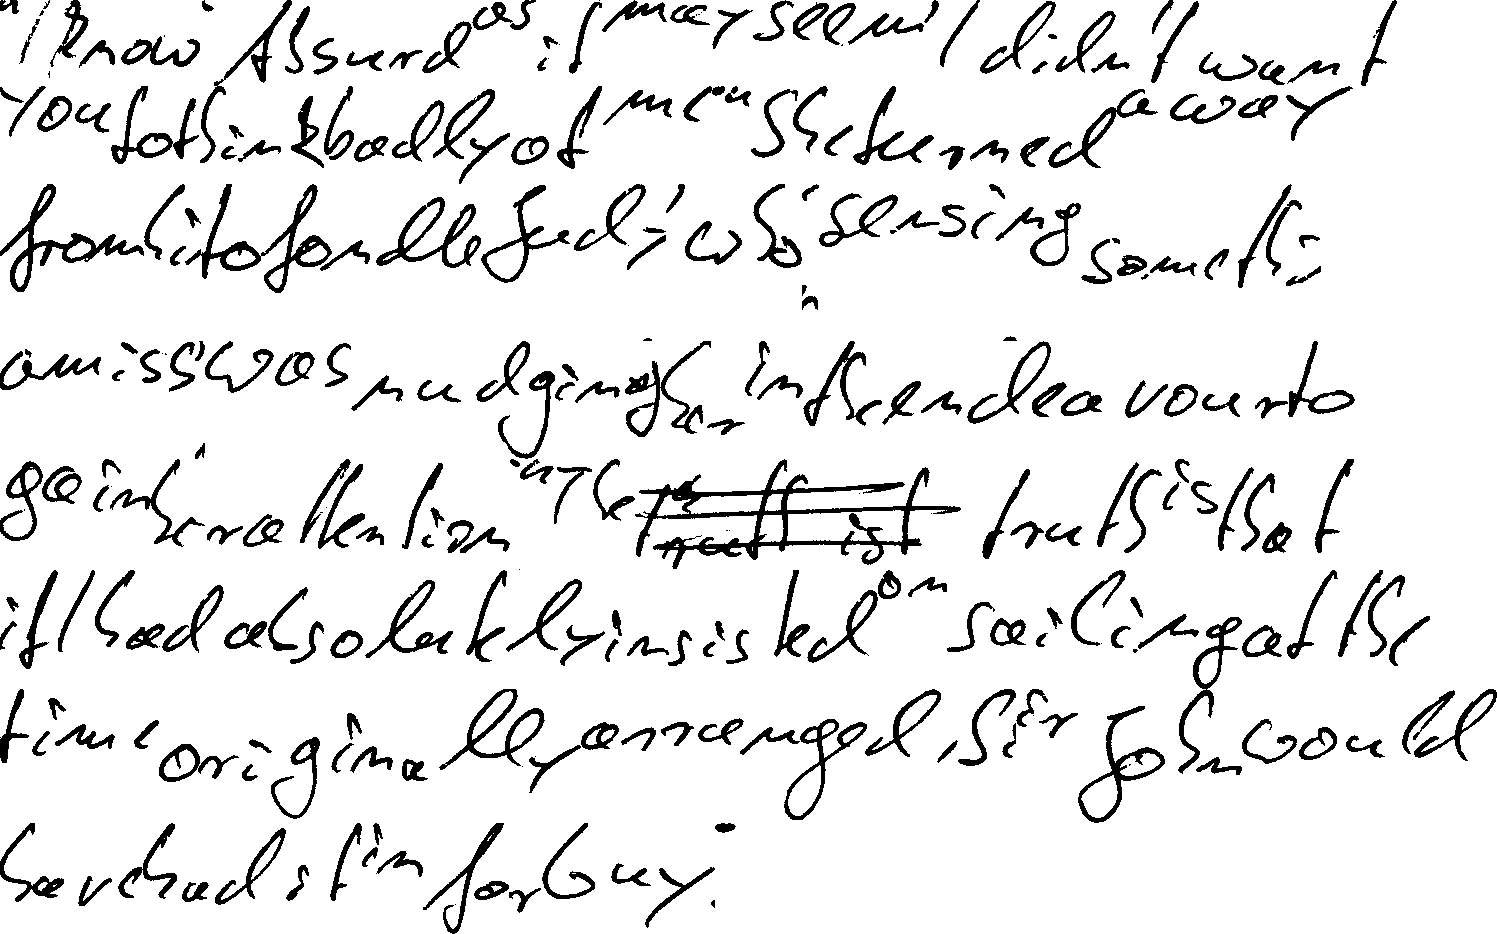 "I know Absurd as it may seem I didn't want
you to think badly of me." She turned away
from him to fondle Judy, who, sensing someth
amiss was nudging her in the endeavour to
gain her attention. "The truth is that
if I had absolutely insisted on sailing at the
time originally arranged, Sir John would
have had it in for Guy.